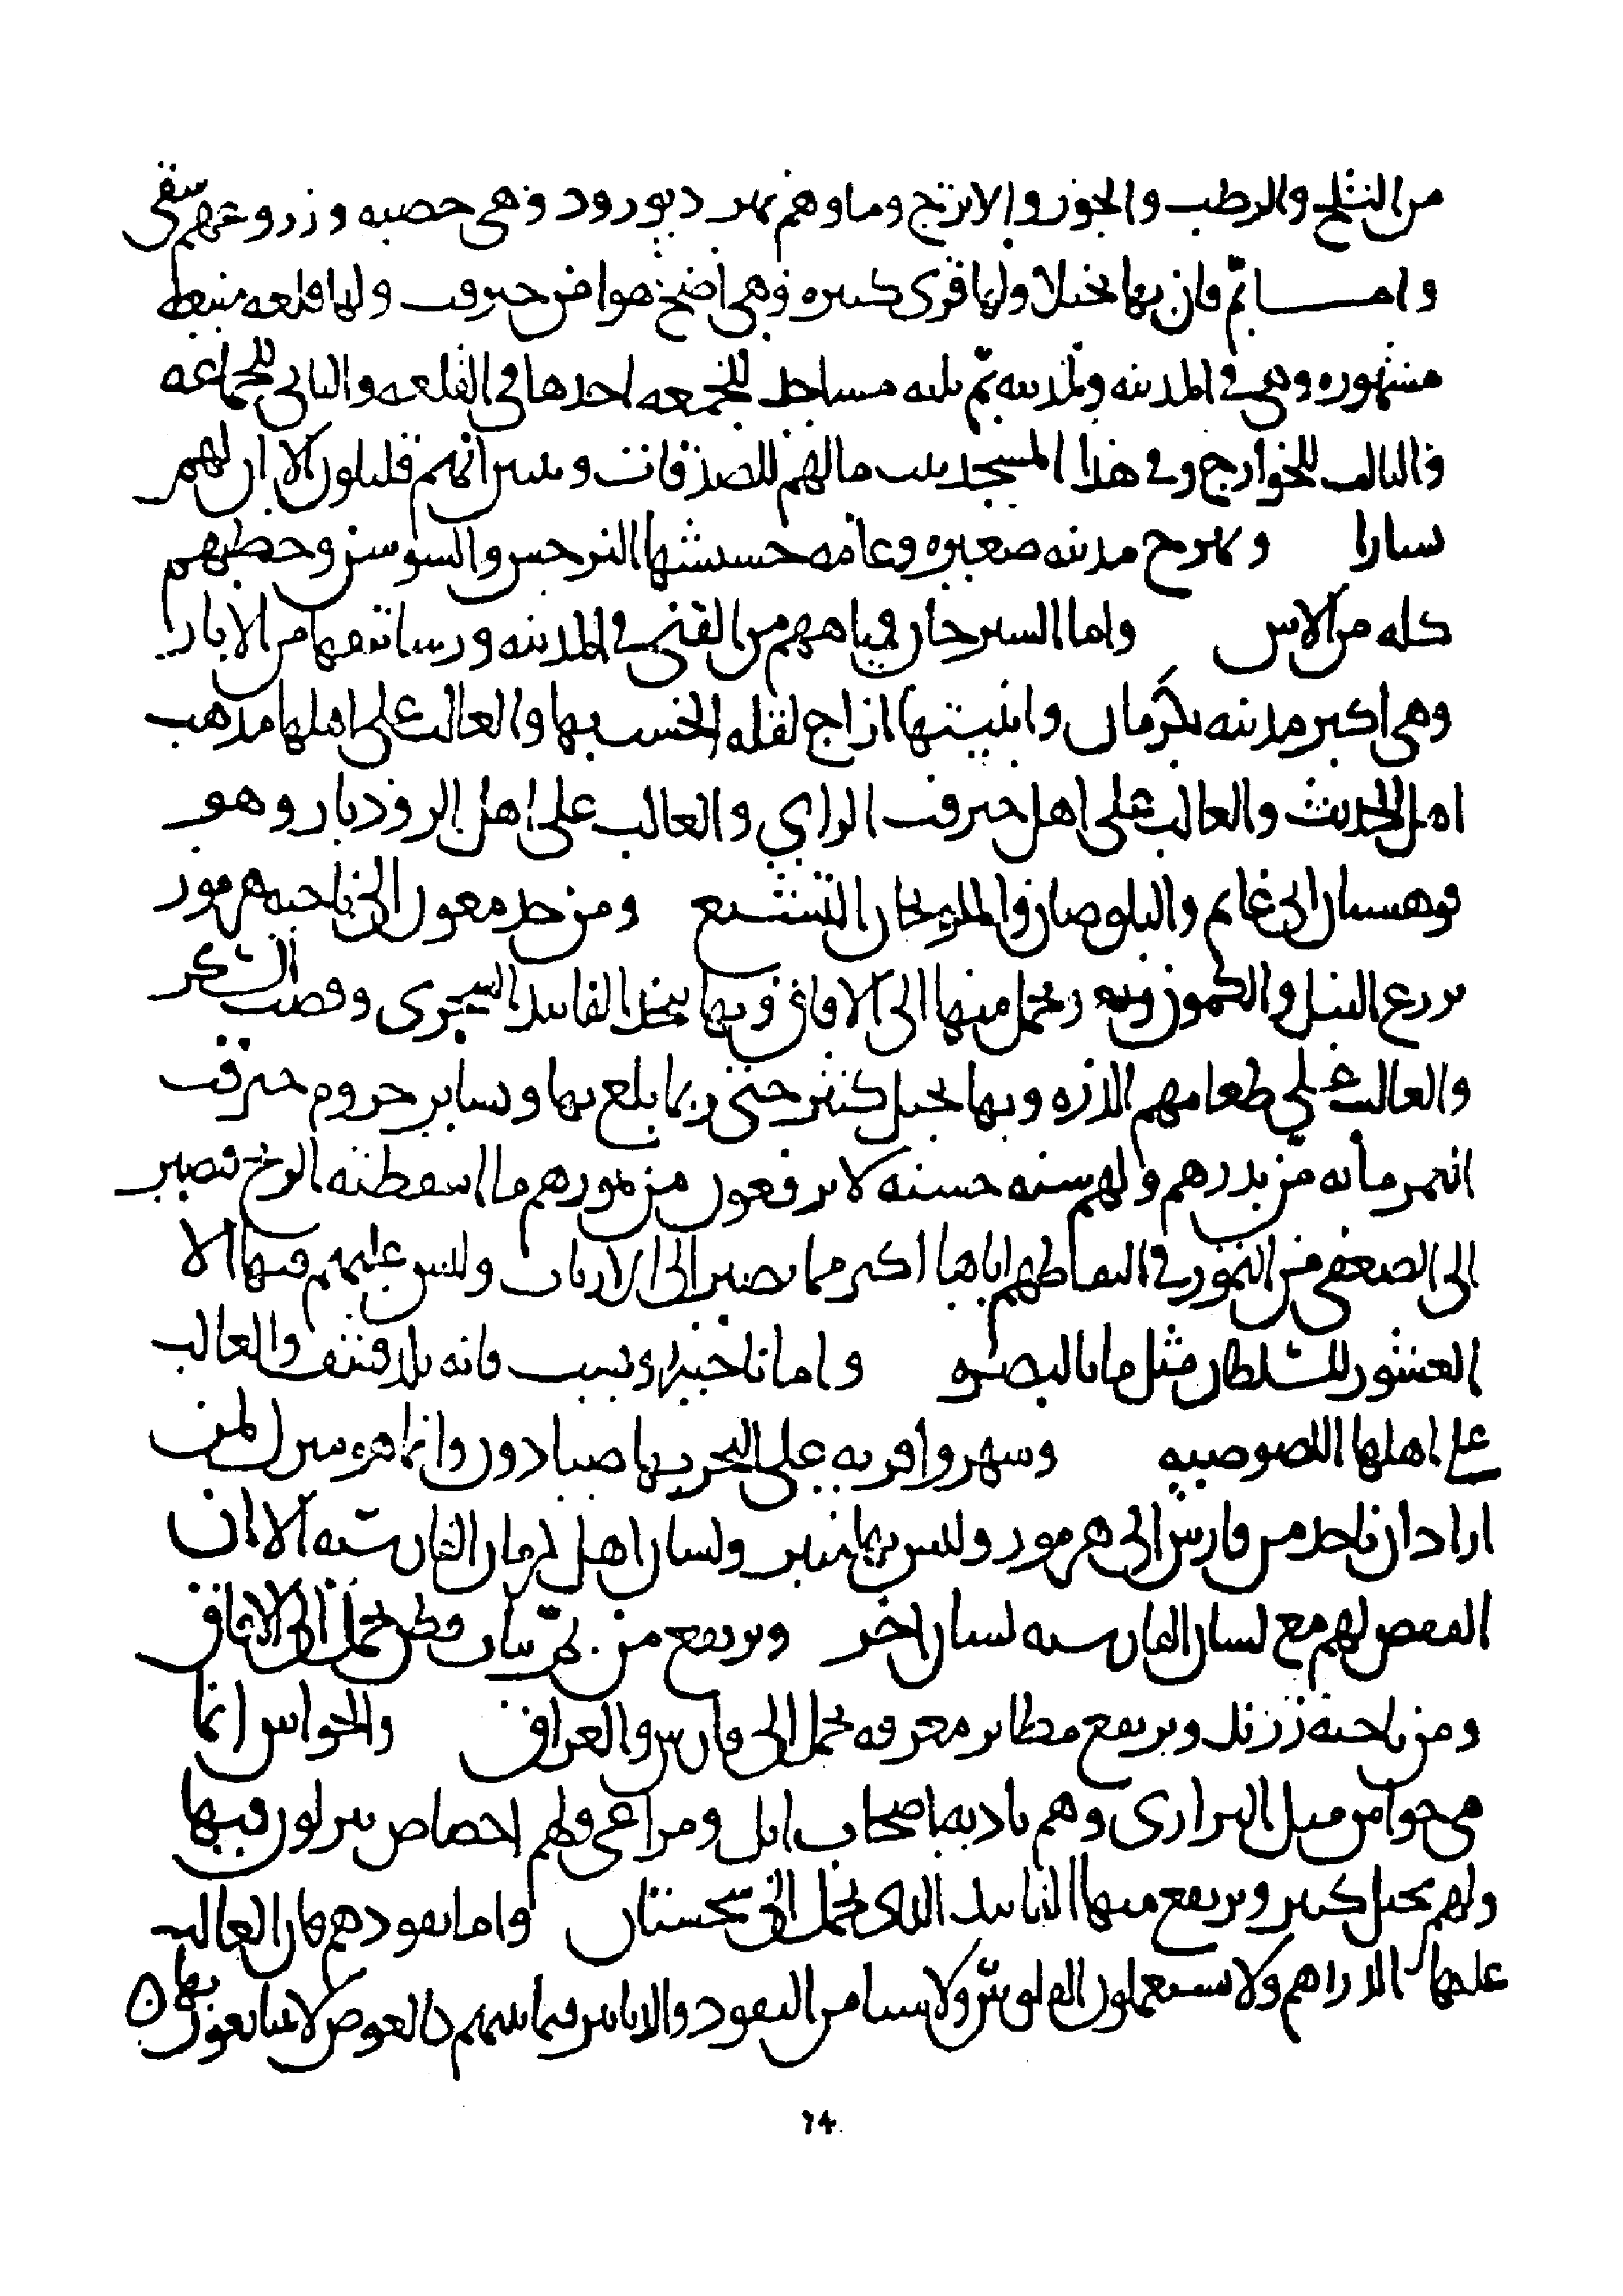 من الثلج والرطب والجوز والاترنج وماوهم نهر ديورود وهي خصبه وزروعهم سقي
واما بم فان بها نخيلا ولها قرى كثيره وهي اصح هوا من جيرفت ولها قلعه منيعه
مشهوره وهي في المدينه ولمدينه بم ثلثه مساجد للجمعه احدها في القلعه والثاني للجماعه
والثالث للخوارج وفي هذا المسجد بيت مالهم للصدقات و انهم قليلون الا ان لهم
يسارا وهرمح مدينه صغيره وعامه حشيشها النرجس والسوسن وحطبهم
كله من الاس واما السيرجان فمياههم من القنى في المدينه ورساتيقها من الابار
وهي اكبر مدينه بكرمان وابنيتها ازاج لقله الخشب بها والغالب على اهلها مذهب
اهل الحديث والغالب على اهل جيرفت الراي والغالب على اهل الروذبار وهو
قوهستان ابي غانم والبلوص والمنوجان التشيع ومن حد مغون الى ناحيه هرموز
يزرع النيل والكمون ويحمل منها الى الافاق وبها يتخذ الفانيد السجزى وقصب السكر
والغالب على طعامهم الذره وبها نخيل كثير حتى ربما بلغ بها وبساير جروم جيرفت
التمر مائه من بدرهم ولهم سنه حسنه لا يرفعون من تمورهم ما اسقطته الريح فيصير
الى الضعفى من التمور في التقاطهم اياها اكثر مما يصير الى الارباب وليس عليهم فيها الا
العشور للسلطان مثل ما بالبصره واما ناحيه فانه بلد قشف والغالب
على اهلها اللصوصيه وسهروا قريه على البحر بها صيادون وانما هو منزل لمن
اراد ان ياخذ من فارس الى هرموز وليس بها منبر ولسان اهل كرمان الفارسيه الا ان
القفص لهم مع لسان الفارسيه لسان اخر ويرتفع من بم ثياب قطن تحمل الى الافاق
ومن ناحيه زرند ويرتفع بطاين معروفه تحمل الى فارس والعراق والخواس انما
هي خواس مثل البراري وهم باديه اصحاب ابل ومراعي ولهم اخصاص ينزلون فيها
ولهم نخيل كثير ويرتفع منها الفانيد الذي يحمل الى سجستان واما نقودهم فان الغالب
عليها الدراهم ولا يستعملون الفلوس ولا شيا من النقود والدنانير فيما بينهم كالعوض لا يتبايعون بها ه
٦٤